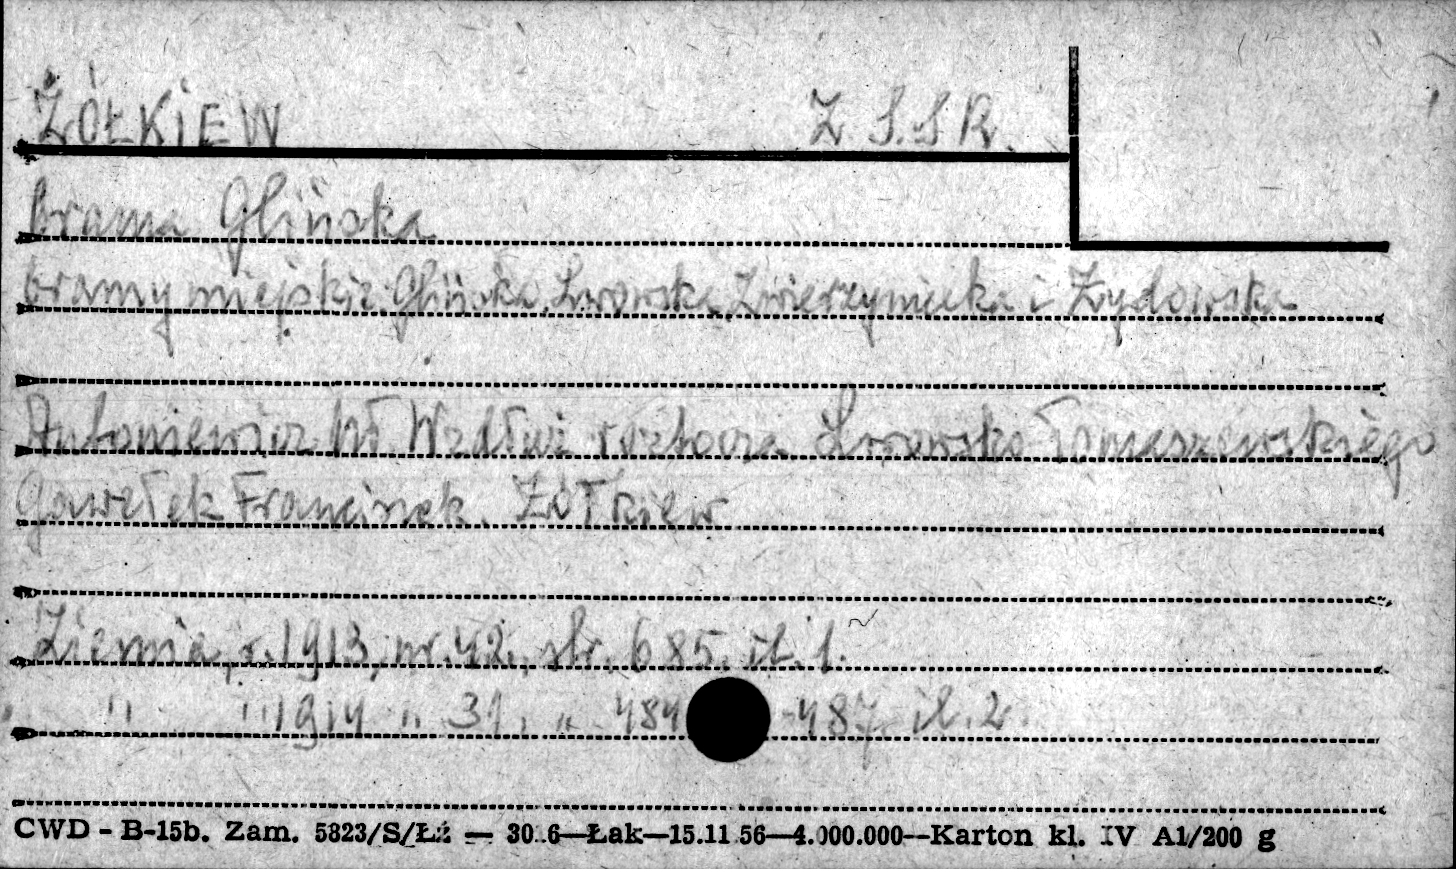 ŻÓŁKIEW Z S.S R.
brama Glińska
bramy miejskie: Glińska, Lwowska, Zwierzyniecka i Żydowska
Antoniewicz Wł. Wzdłuż roztocza Lwowsko Tomaszewskiego
Gawełek Franciszek. Żółkiew
Ziemia, r. 1913, nr. 42., str. 685. il. 1.
" " 1914 " 31, " 484-487 il. 2.
CWD - B-15b. Zam. 5823/S/Łź — 30.6—Łak—15.11 56—4.000.000—Karton kl. IV A1/200 g